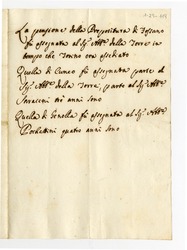 La pensione della Prepositura di Fossano
fù assegnata al Sig.r Abb.e della Torre in
tempo che Torino era assediato.
Quella di Cuneo fù assegnata parte al
Sig.r Abb.e della Torre, e parte al Sig.r Abb.e
Saraceni sei anni sono
Quella di Genolla fù assegnata al Sig.r Abb.e
Pochettini quatro anni sono